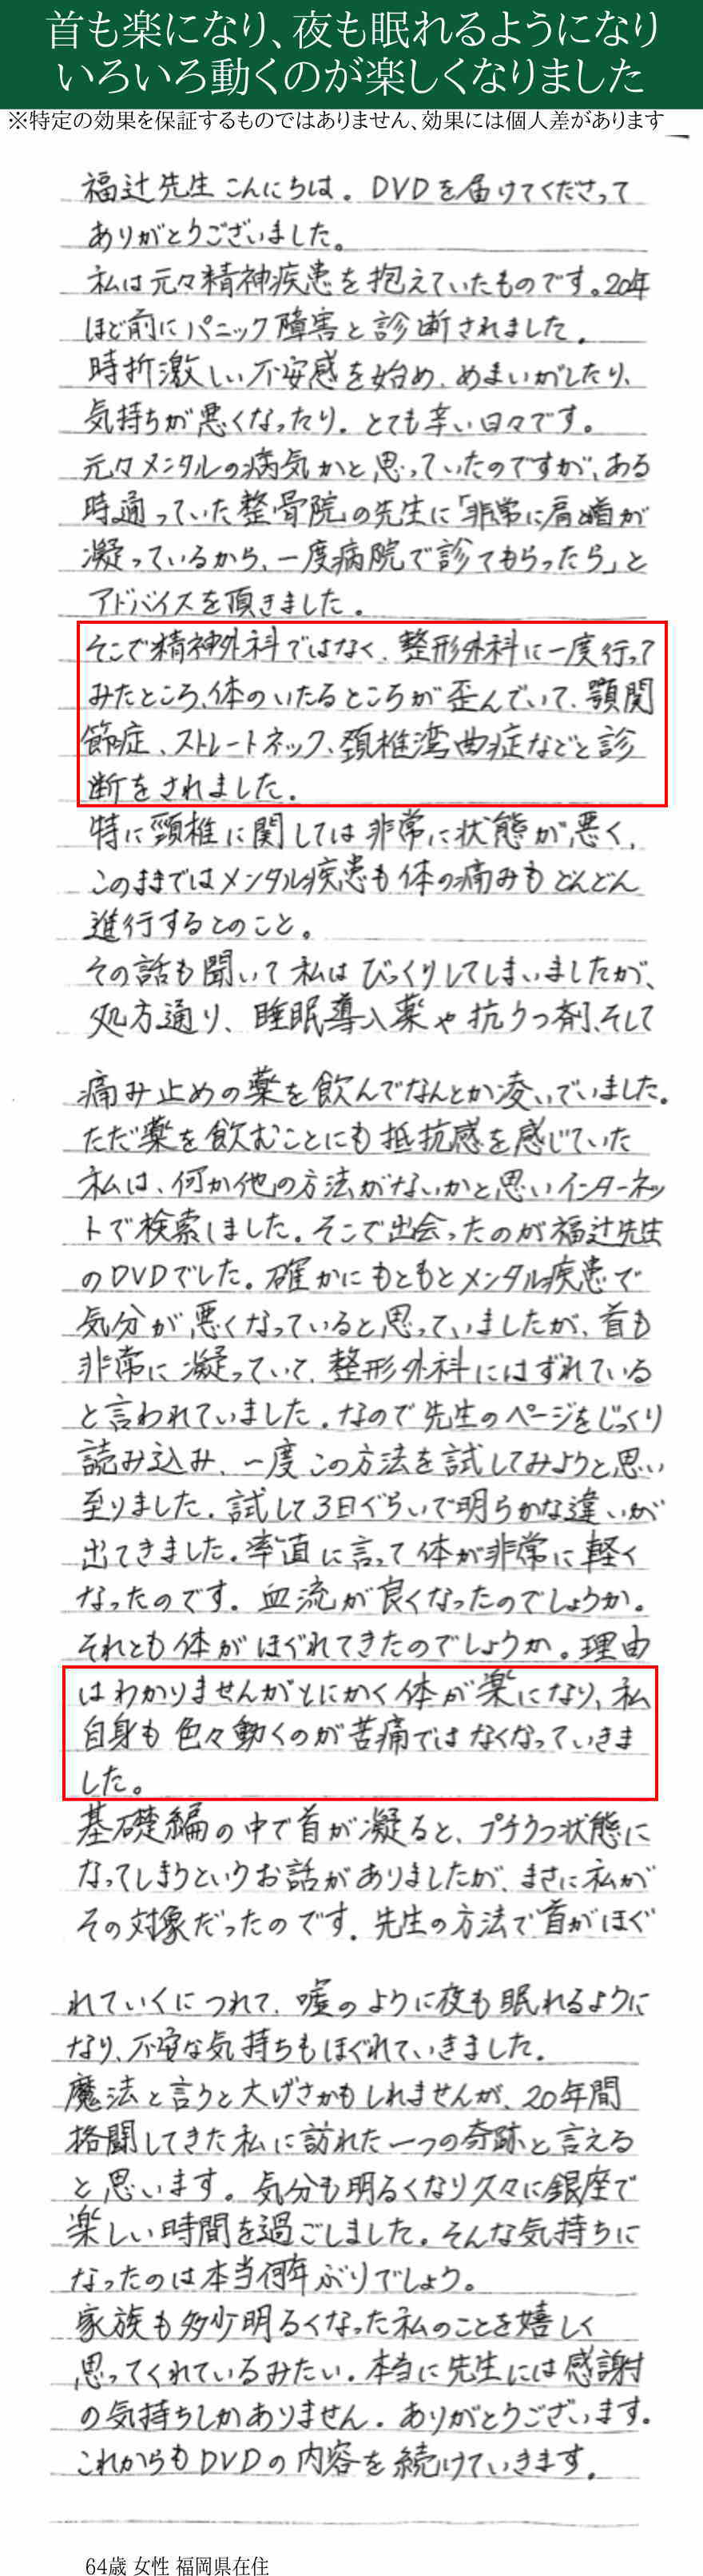 首も楽になり、夜も眠れるようになり
いろいろ動くのが楽しくなりました
※特定の効果を保証するものではありません、効果には個人差があります
福辻先生こんにちは。DVDを届けてくださって
ありがとうございました。
私は元々精神疾患を抱えていたものです。20年
ほど前にパニック障害と診断されました。
時折激しい不安感を始め、めまいがしたり、
気持ちが悪くなったり。とても辛い日々です。
元々メンタルの病気かと思っていたのですが、ある
時通っていた整骨院の先生に「非常に肩と首が
凝っているから、一度病院で診てもらったら」と
アドバイスを頂きました。
そこで精神外科ではなく、整形外科に一度行って
みたところ、体のいたるところが歪んでいて、顎関
節症、ストレートネック、頚椎湾曲症などと診
断をされました。
特に頸椎に関しては非常に状態が悪く、
このままではメンタル疾患も体の痛みもどんどん
進行するとのこと。
その話も聞いて私はびっくりしてしまいましたが、
処方通り、睡眠導入薬や抗うつ剤、そして
痛み止めの薬を飲んでなんとか凌いでいました。
ただ薬を飲むことにも抵抗感を感じていた
私は、何か他の方法がないかと思いインターネッ
トで検索しました。そこで出会ったのが福辻先生
のDVDでした。確かにもともとメンタル疾患で
気分が悪くなっていると思っていましたが、首も
非常に凝っていて、整形外科にはずれている
と言われていました。なので先生のページをじっくり
読み込み、一度この方法を試してみようと思い
至りました。試して3日ぐらいで明らかな違いが
出てきました。率直に言って体が非常に軽く
なったのです。血流が良くなったのでしょうか。
それとも体がほぐれてきたのでしょうか。理由
はわかりませんがとにかく体が楽になり、私
自身も色々動くのが苦痛ではなくなっていきま
した。
基礎編の中で首が凝ると、プチうつ状態に
なってしまうというお話がありましたが、まさに私が
その対象だったのです。先生の方法で首がほぐ
れていくにつれて、嘘のように夜も眠れるように
なり、不安な気持ちもほぐれていきました。
魔法と言うと大げさかもしれませんが、20年間
格闘してきた私に訪れた一つの奇跡と言える
と思います。気分も明るくなり久々に銀座で
楽しい時間を過ごしました。そんな気持ちに
なったのは本当何年ぶりでしょう。
家族も多少明るくなった私のことを嬉しく
思ってくれているみたい。本当に先生には感謝
の気持ちしかありません。ありがとうございます。
これからもDVDの内容を続けていきます。
64歳 女性 福岡県在住